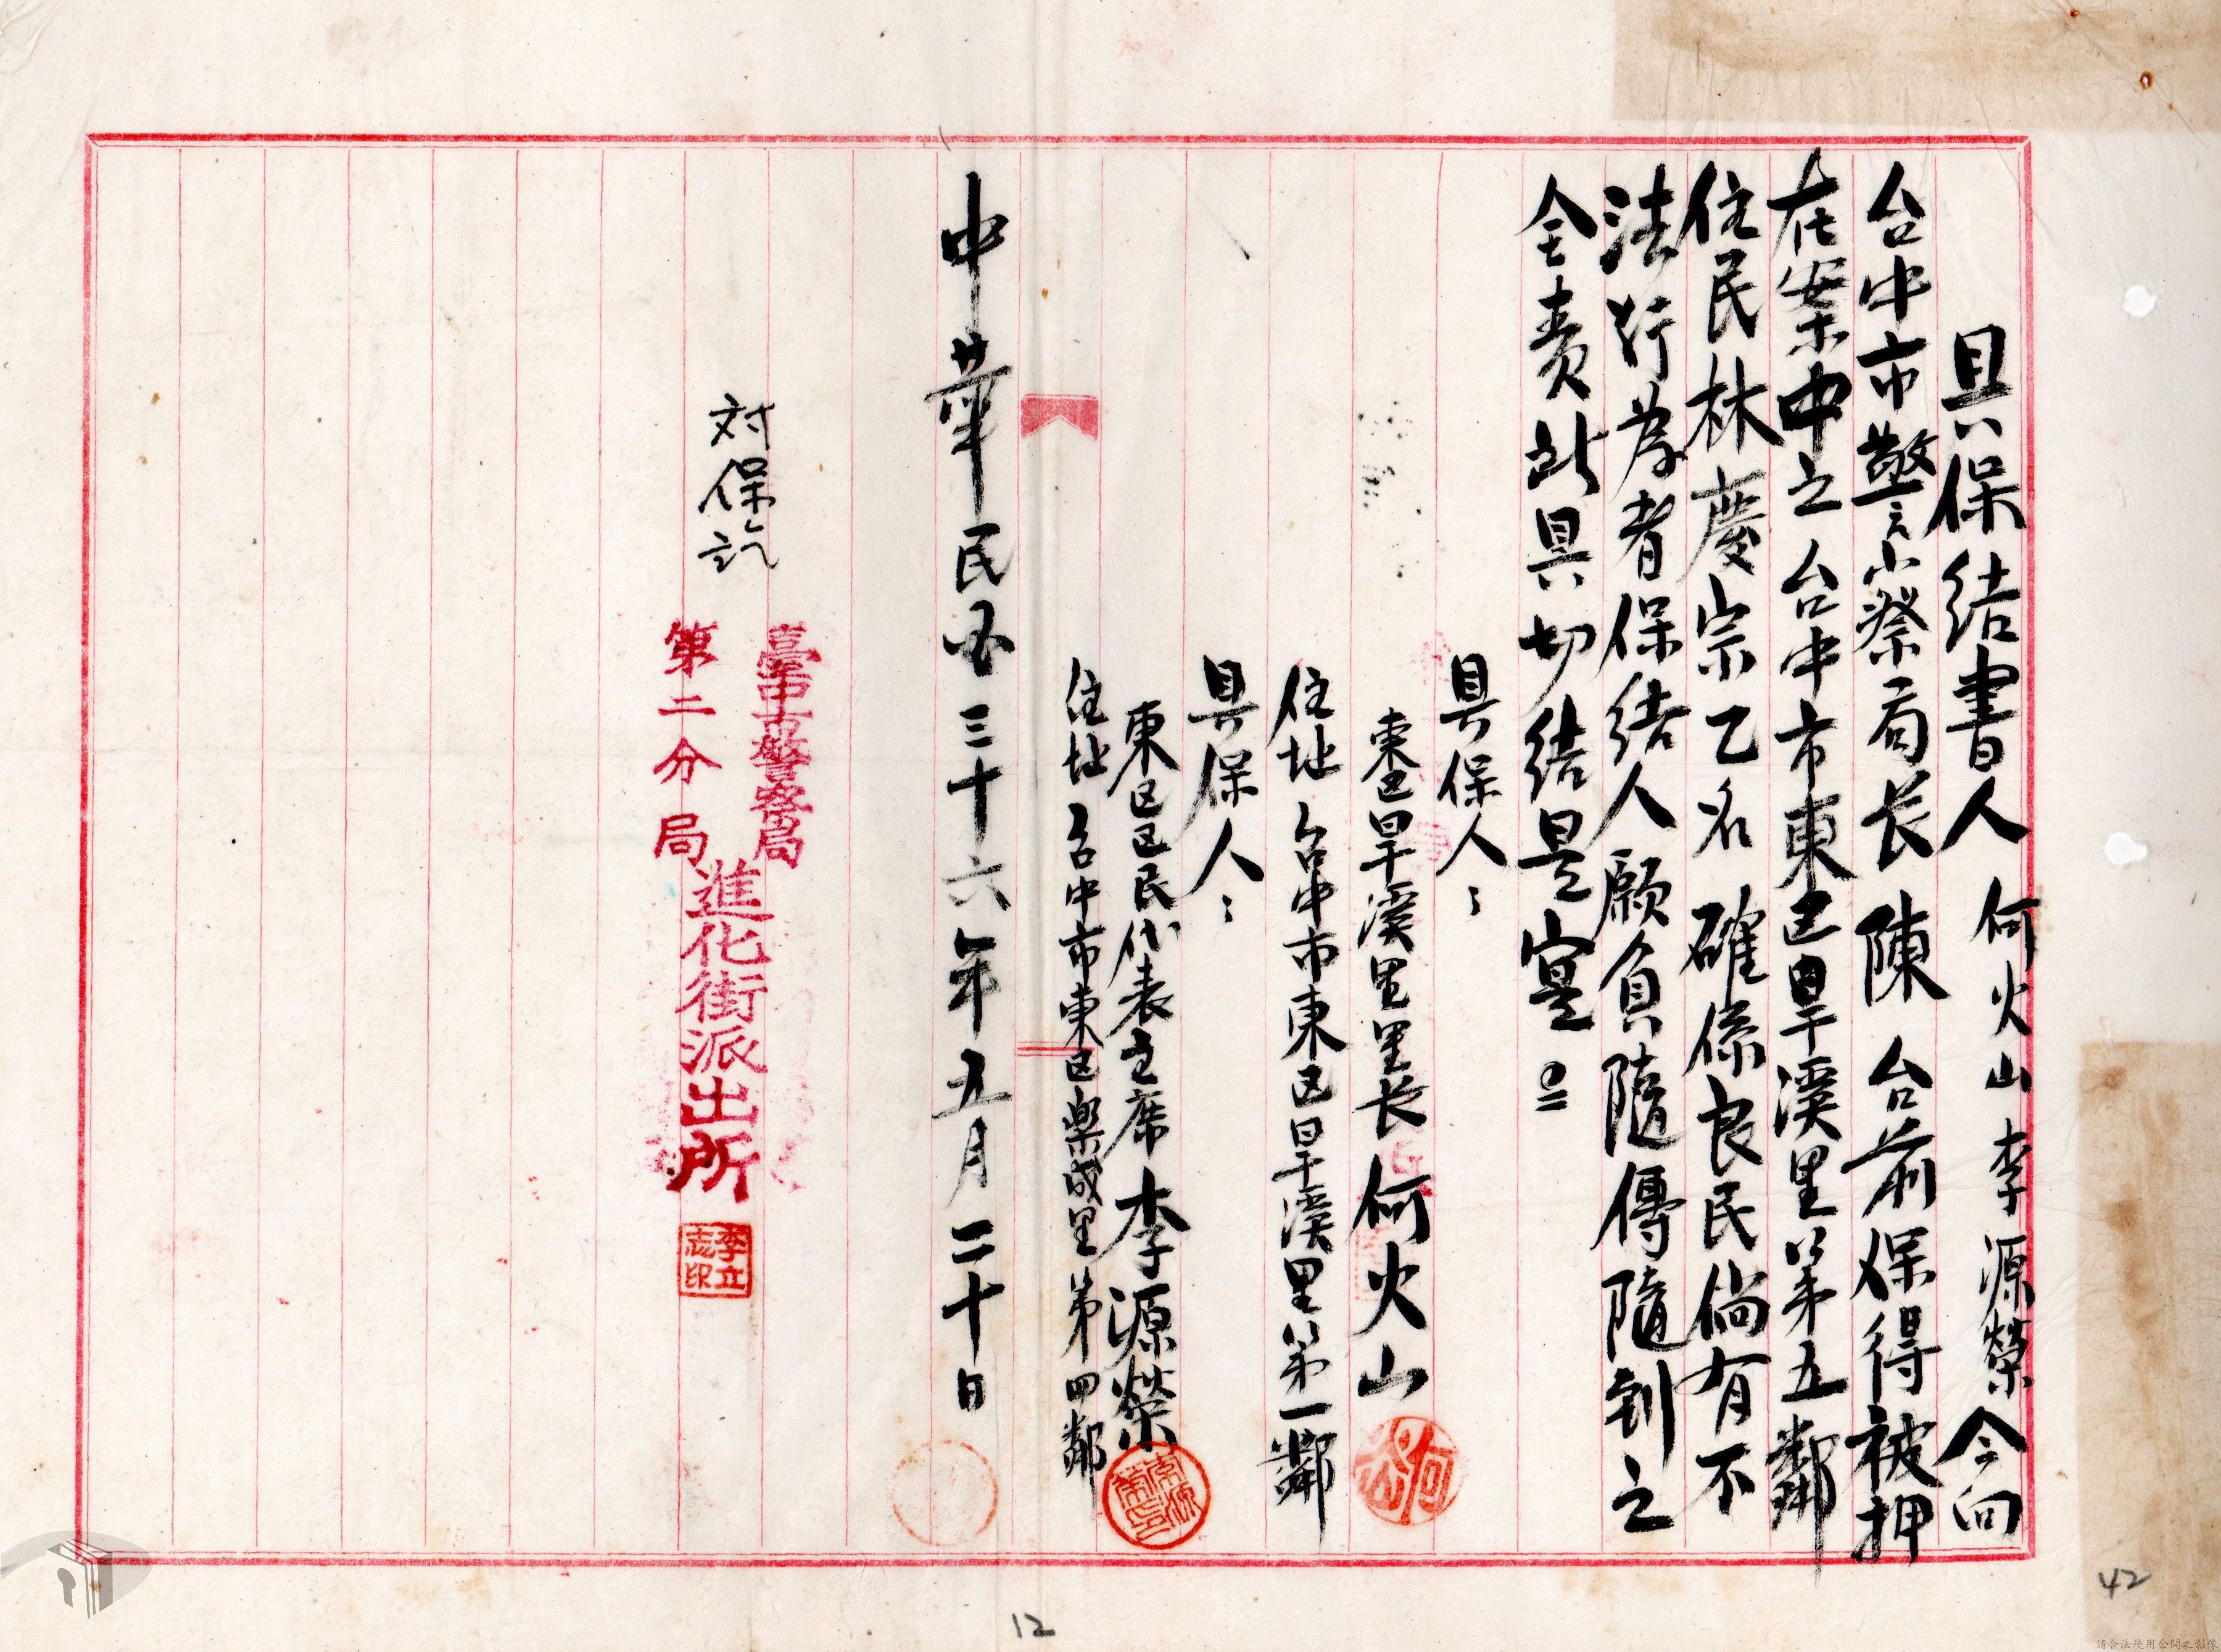 具保結書人 何火山 李源榮 今向
台中市警察局长 陳 台前保得被押
在案中之台中市東区旱溪里第五鄰
住民林慶宗乙名 確係良民倘有不
法行為者保結人願負隨傳隨到之
全責此具切结是寔
具保人
東区旱溪里里长 何火山
住址 台中市東区旱溪里第一鄰
具保人
東区区民代表主席 李源榮
住址 台中市東区楽成里第四鄰
中華民国三十六年五月二十日
対保訖
臺中市警察局
第二分局
進化街派出所
李立志印
12
42
請合法使用公開之影像